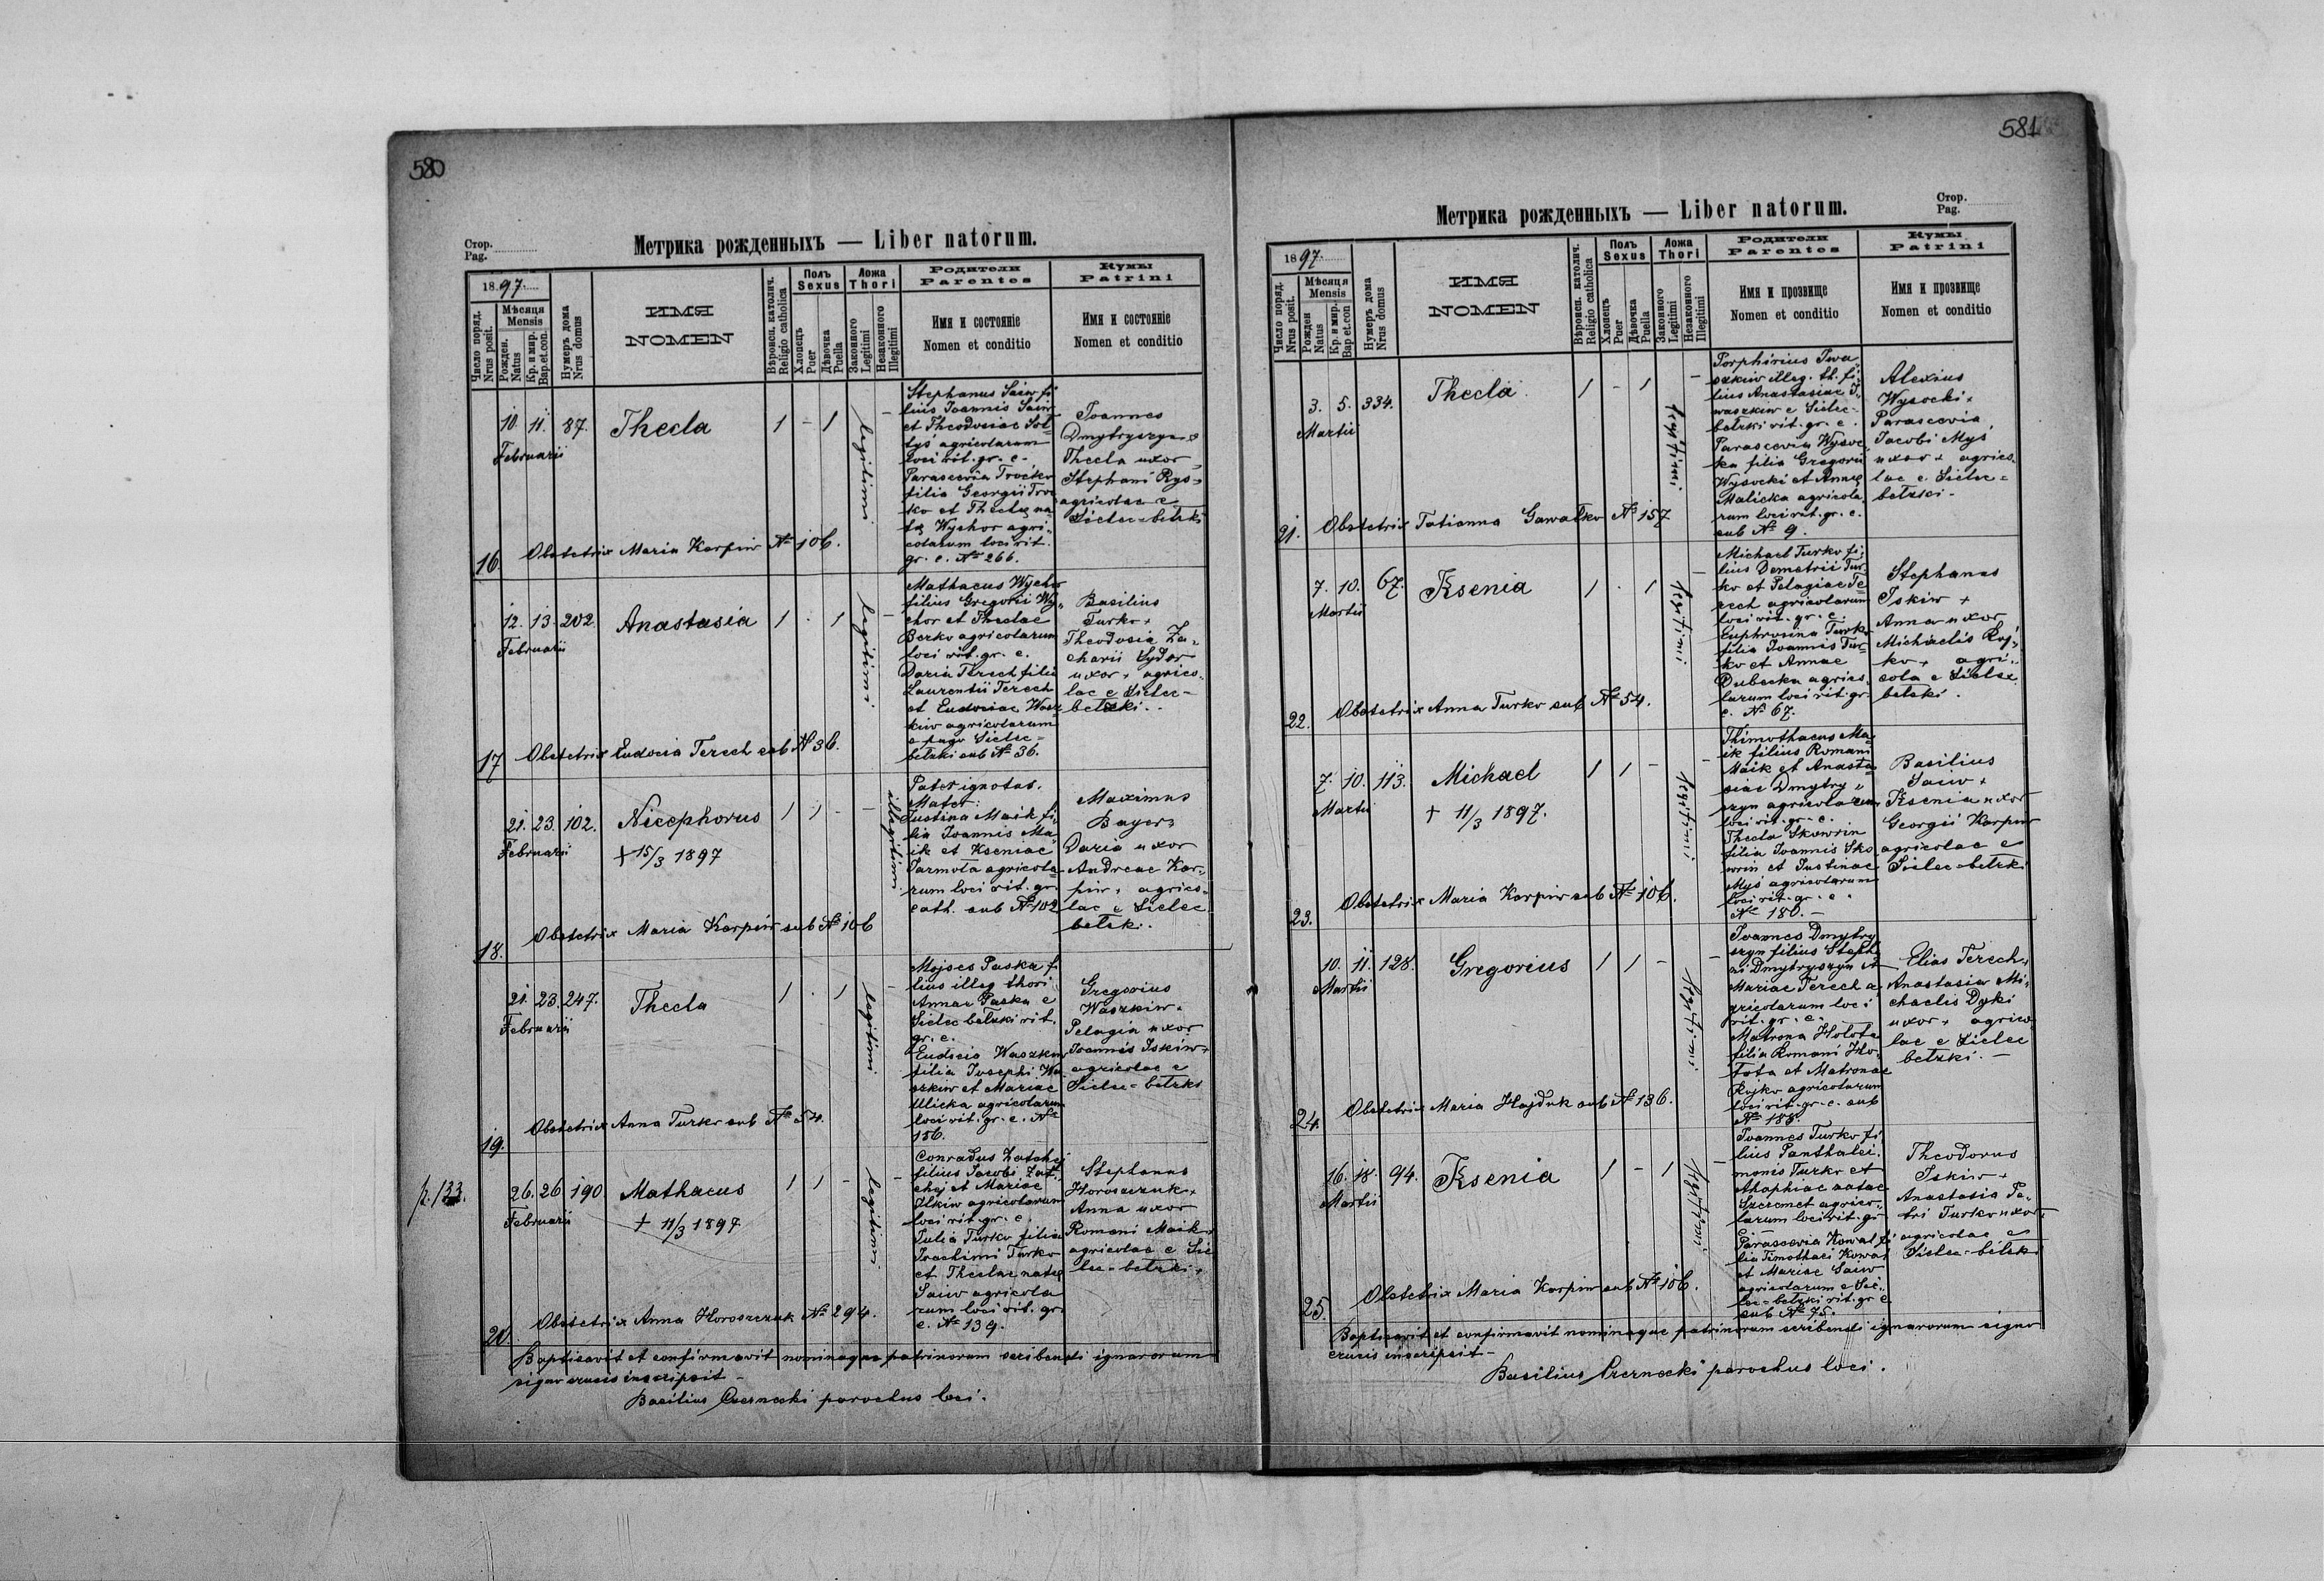 580
Стор.
Pag.
Метрика рожденныхъ — Liber natorum.
1897
Число поряд.
Nrus posit.
Мѣсяця
Mensis
Рожден.
Natus
Кр. и мир.
Bap.et.con.
Нумеръ дома
Nrus domus
ИМЯ
NOMEN
Вѣроисп. католич.
Religio catholica
Полъ
Sexus
Хлопецъ
Puer
Дѣвочка
Puella
Ложа
Thori
Законного
Legitimi
Незаконного
Illegitimi
Родители
Parentes
Имя и состояніе
Nomen et conditio
Кумы
Patrini
Имя и состояніе
Nomen et conditio
16
10. 11. 87.
Februarii
Thecla
1 - 1
legitimi
-
Stephanus Saiw fi
lius Joannis Saiw
et Theodosiae Soł
tys agricolarum
loci rit. gr. c.
Parascevia Troćko
filia Georgii Troć
ko et Theclę na
tę Wychor agri
colarum loci rit.
gr. c. Nº 266.
Joannes
Dmytryszyn +
Thecla uxor
Stephani Rys +
agricolae e
Sielec=bełzki
Obstetrix Maria Karpiw Nº 106.
17
12. 13. 202.
Februarii
Anastasia
1 . 1
legitimi
-
Mathaeus Wychor
filius Gregorii Wy
chor et Theclae
Berko agricolarum
loci rit. gr. c.
Daria Terech filia
Laurentii Terech
et Eudociae Wasz
kiw agricolarum
e pago Sielec=
bełzki sub Nº 36.
Basilius
Turko +
Theodosia Za
charii Sydor
uxor + agrico
lae e Sielec=
bełzki.
Obstetrix Eudocia Terech sub Nº 36.
18.
21. 23. 102.
Februarii
Nicephorus
+ 15/3 1897
1 1 - -
illegitimi
Pater ignotus.
Mater:
Justina Maik fi
lia Joannis Ma
ik et Kseniae
Jarmoła agricola
rum loci rit. gr.
cath. sub Nº 102
Maximus
Bayer +
Daria uxor
Andreae Kar
piw + agrico
lae e Sielec
bełzki.
Obstetrix Maria Karpiw sub Nº 106
19.
21. 23. 247.
Februarii
Thecla
1 . 1
legitimi
-
Mojses Paska fi
lius illeg thori
Annae Paska e
Sielec bełzki rit.
gr. c.
Eudocia Waszkiw
filia Josephi Wa
szkiw et Mariae
Ulicka agricolarum
loci rit. gr. c. Nº
156.
Gregorius
Waszkiw +
Pelagia uxor
Joannis Iskiw +
agricolae e
Sielec=bełzki
Obstetrix Anna Turko sub Nº 54.
p. 133.
20.
26. 26 190.
Februarii
Mathaeus
+ 11/3 1897
1 1 -
legitimi
-
Conradus Zatchej
filius Jacobi Zat
chej et Mariae
Ilkiw agricolarum
loci rit. gr. c.
Julia Turko filia
Joachimi Turko
et Theclae natę
Saiw agricola
rum loci rit. gr.
c. Nº 139.
Stephanus
Horoszczuk +
Anna uxor
Romani Maik +
agricolae e Sie
lec=bełzki +
Obstetrix Anna Horoszczuk Nº 294.
Baptisavit et confirmavit nominaque patrinorum scribendi ignarorum
signo crucis inscripsit –
Basilius Czernecki parochus loci.
581
Стор.
Pag.
Метрика рожденныхъ — Liber natorum.
1897
Число поряд.
Nrus posit.
Мѣсяця
Mensis
Рожден
Natus
Кр. и мир.
Bap et.con
Нумеръ дома
Nrus domus
ИМЯ
NOMEN
Вѣроисп. католич.
Religio catholica
Полъ
Sexus
Хлопецъ
Puer
Дѣвочка
Puella
Ложа
Thori
Законного
Legitimi
Незаконного
Illegitimi
Родители
Parentes
Имя и прозвище
Nomen et conditio
Кумы
Patrini
Имя и прозвище
Nomen et conditio
21.
3. 5. 334.
Martii
Thecla.
1 - 1
legitimi
-
Porphirius Iwa
szkiw illeg. th. fi
lius Anastasiae I
waszkiw e Sielec=
bełzki rit. gr. c.
Parascevia Wysoc
ka filia Gregorii
Wysocki et Annę
Malicka agricola
rum loci rit. gr. c.
sub Nº 9.
Alexius
Wysocki +
Parascevia
Jacobi Mys
uxor + agrico
lae e Sielec=
bełzki –
Obstetrix Tatianna Gawałko Nº 157
22.
7. 10. 67.
Martii
Ksenia
1 . 1
legitimi
-
Michael Turko fi
lius Demetrii Tur
ko et Pelagiae Te
rech agricolarum
loci rit. gr. c.
Euphrosina Turko
filia Joannis Tur
ko et Annae
Dubecka agrico
larum loci rit. gr.
c. Nº 67.
Stephanus
Iskiw +
Anna uxor
Michaelis Roj
ko + agri
cola e Sielec
bełzki.
Obstetrix Anna Turko sub Nº 54.
23.
7. 10. 113.
Martii
Michael
+ 11/3 1897.
1 1 -
legitimi
-
Thimothaeus Ma
ik filius Romani
Maik et Anasta
siae Dmytry
szyn agricolarum
loci rit. gr. c.
Thecla Skowrin
filia Joannis Sko
wrin et Justinae
Mys agricolarum
loci rit. gr. c.
Nº 180. –
Basilius
Saiw +
Ksenia uxor
Georgii Karpiw
agricolae e
Sielec=bełzki
Obstetrix Maria Karpiw sub Nº 106.
24.
10. 11. 128.
Martii
Gregorius
1 1 -
legitimi
-
Joannes Dmytry
szyn filius Steph
ai Dmytryszyn et
Mariae Terech a
gricolarum loci
rit. gr. c.
Matrona Hołota
filia Romani Ho
łota et Matronae
Rojko agricolarum
loci rit. gr. c. sub
Nº 188.
Elias Terech +
Anastasia Mi
chaelis Dyki
uxor + agrico
lae e Sielec
bełzki. –
Obstetrix Maria Hajduk sub Nº 136.
25.
16. 18. 94.
Martii
Ksenia
1 - 1
legitimi
-
Joannes Turko fi
lius Panthalei
monis Turko et
Ahaphiae natae
Szesmet agrico
larum loci rit. gr
Parascevia Kowal fi
lia Timothaei Kowal
et Mariae Saiw
agricolarum e Sie
lec=bełzki rit. gr c
sub Nº 75.
Theodorus
Iskiw +
Anastasia Pe
tri Turko uxor +
agricolae e
Sielec=bełzki
Obstetrix Maria Karpiw sub Nº 106.
Baptisavit et confirmavit nominaque patrinorum scribendi ignarorum signo
crucis inscripsit –
Basilius Czernecki parochus loci.